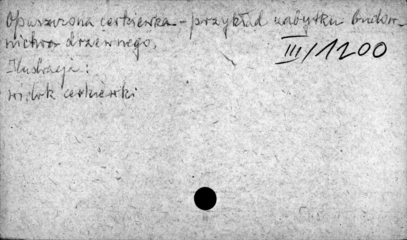 Opuszczona cerkiewka - przykład zabytku budow-
nictwa drzewnego.
III/1200
Ilustracja:
widok cerkiewki